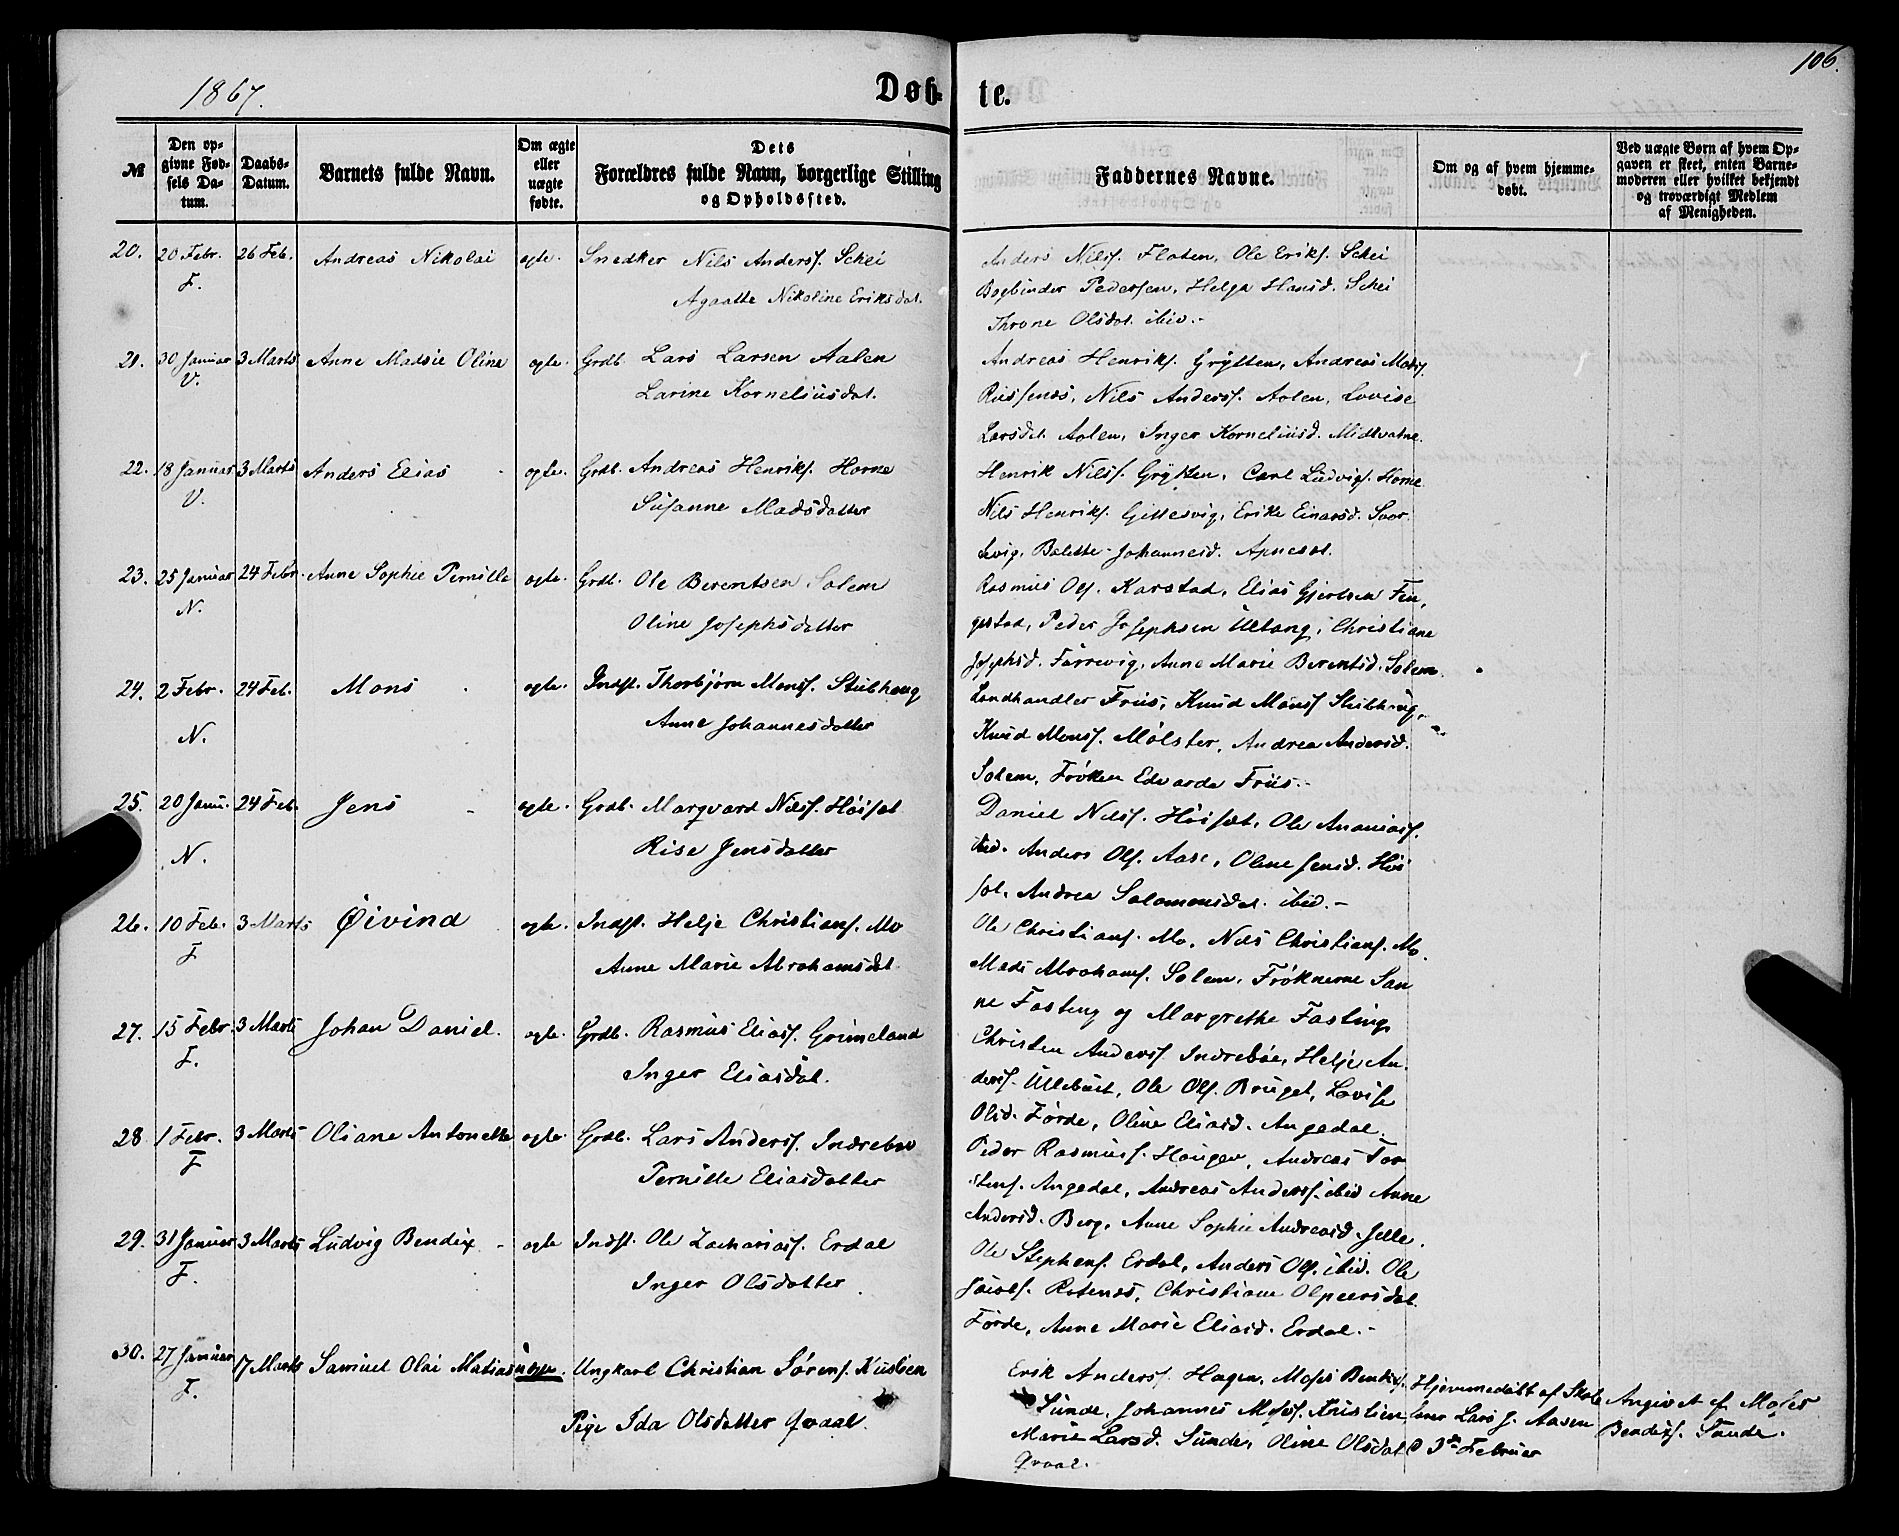 1867.
Døb-
te.
106.
№
Den op-
givne Fød-
sels Da-
tum.
Daabs-
Datum.
Barnets fulde Navn.
Om ægte
eller
uægte
fødte.
Dets
Forældres fulde Navn, borgerlige Stilling
og Opholdssted.
Faddernes Navne.
Om og af hvem hjemme-
døbt.
Ved uægte Børn af hvem Op-
gaven er skeet, enten Barne-
moderen eller hvilket bekjendt
og troværdigt Medlem
af Menigheden.
20. 20 Febr. 26 Feb. Andreas Nikolai ægte. Snedker Nils Anderss. Schei
F. Agaatte Nikoline Eriksdat.
Anders Nilss. Flaten, Ole Eriks. Schei
Bogbinder Pedersen, Helga Hansd. Schei
Throne Olsdat. ibid.-
21. 30 Januar 3 Marts Anne Madsie Oline ægte. Grdb. Lars Larsen Aalen
V. Larine Korneliusdat.
Andreas Henriks. Grytten, Andreas Mads.
Russenæs, Nils Anderss. Aalen, Lovise
Larsdat. Aalen, Inger Korneliusd. Midtvatne.
22. 18 Januar 3 Marts Anders Elias ægte. Grdb. Andreas Henriks. Horne
V. Susanne Madsdatter
Henrik Nilss. Grytten, Carl Ludvigs. Horne
Nils Henriks. Gjittesvig, Erike Einarsd. Svor-
tevig, Balette Johannesd. Apneset.
23. 25 Januar 24 Febr. Anne Sophie Pernille ægte. Grdb. Ole Berentsen Solem
N. Oline Josephsdatter
Rasmus Ols. Karstad, Elias Gjertsen Fin-
gestad, Peder Josephsen Ultang, Christiane
Josephsd. Førrevig, Anne Marie Berentsd. Solem.
24. 2 Febr. 24 Feb. Mons ægte. Indst. Thorbjørn Monss. Stubhaug
N. Anne Johannesdatter
Landhandler Friis, Knud Monss. Stubhaug,
Knud Monss. Mølster, Andrea Andersd.
Solem, Frøken Edvarda Friis.-
25. 20 Janu. 24 Feb. Jens ægte. Grdb. Marqvard Nilss. Høisæt
N. Rise Jensdatter
Daniel Nilss. Høisæt, Ole Ananiass.
ibid. Anders Ols. Aase, Oline Jensd. Høi-
sæt, Andrea Salomonsdat. ibid.-
26. 10 Feb. 3 Marts Øivind ægte. Indst. Helje Christians. Mo
F Anne Marie Abrahamsdat.
Ole Christians. Mo, Nils Christians. Mo.
Mads Abrahams. Solem, Frøknerne San-
ne Fasting og Margrethe Fasting
27. 15 Febr. 3 Marts Johan Daniel. ægte. Grdb. Rasmus Eliass. Grimeland
F. Inger Eliasdat.
Christen Anderss. Indrebøe, Helje An-
derss. Ullebust, Ole Ols. Bruget, Lovise
Olsd. Førde, Oline Eliasd. Angedal.
28 1 Febr. 3 Marts Oliane Antonette ægte. Grdb. Lars Anderss. Indrebøe
F Pernille Eliasdatter
Peder Rasmuss. Hougen, Andreas Tor-
stens. Angedal, Andreas Anderss. ibid Anne
Andersd. Berg, Anne Sophie Andreasd. Jelle.
29. 31 Januar 3 Marts Ludvig Bendix - ægte Indst. Ole Zachariass. Erdal
F. Inger Olsdatter
Ole Stephens. Erdal, Anders Ols. ibid. Ole
Jacobs. Rotenæs, Christiane Olpeersdat.
Førde, Anne Marie Eliasd. Erdal.-
30. 27 Januar 17 Marts Samuel Olai Matias uægte. Ungkarl Christian Sørens. Kustien
F. Pige Ida Olsdatter Qvaal.
Erik Anderss. Hagen, Moses Bendix. Hjemmedøbt af Skole- Angivet af Moses
Sunde, Johannes Moses. Kristien, lærer Lars J. Aasen Bendixs. Sunde.
Marie Larsd. Sunde, Oline Olsdat. D 3de Februar
Qvaal.